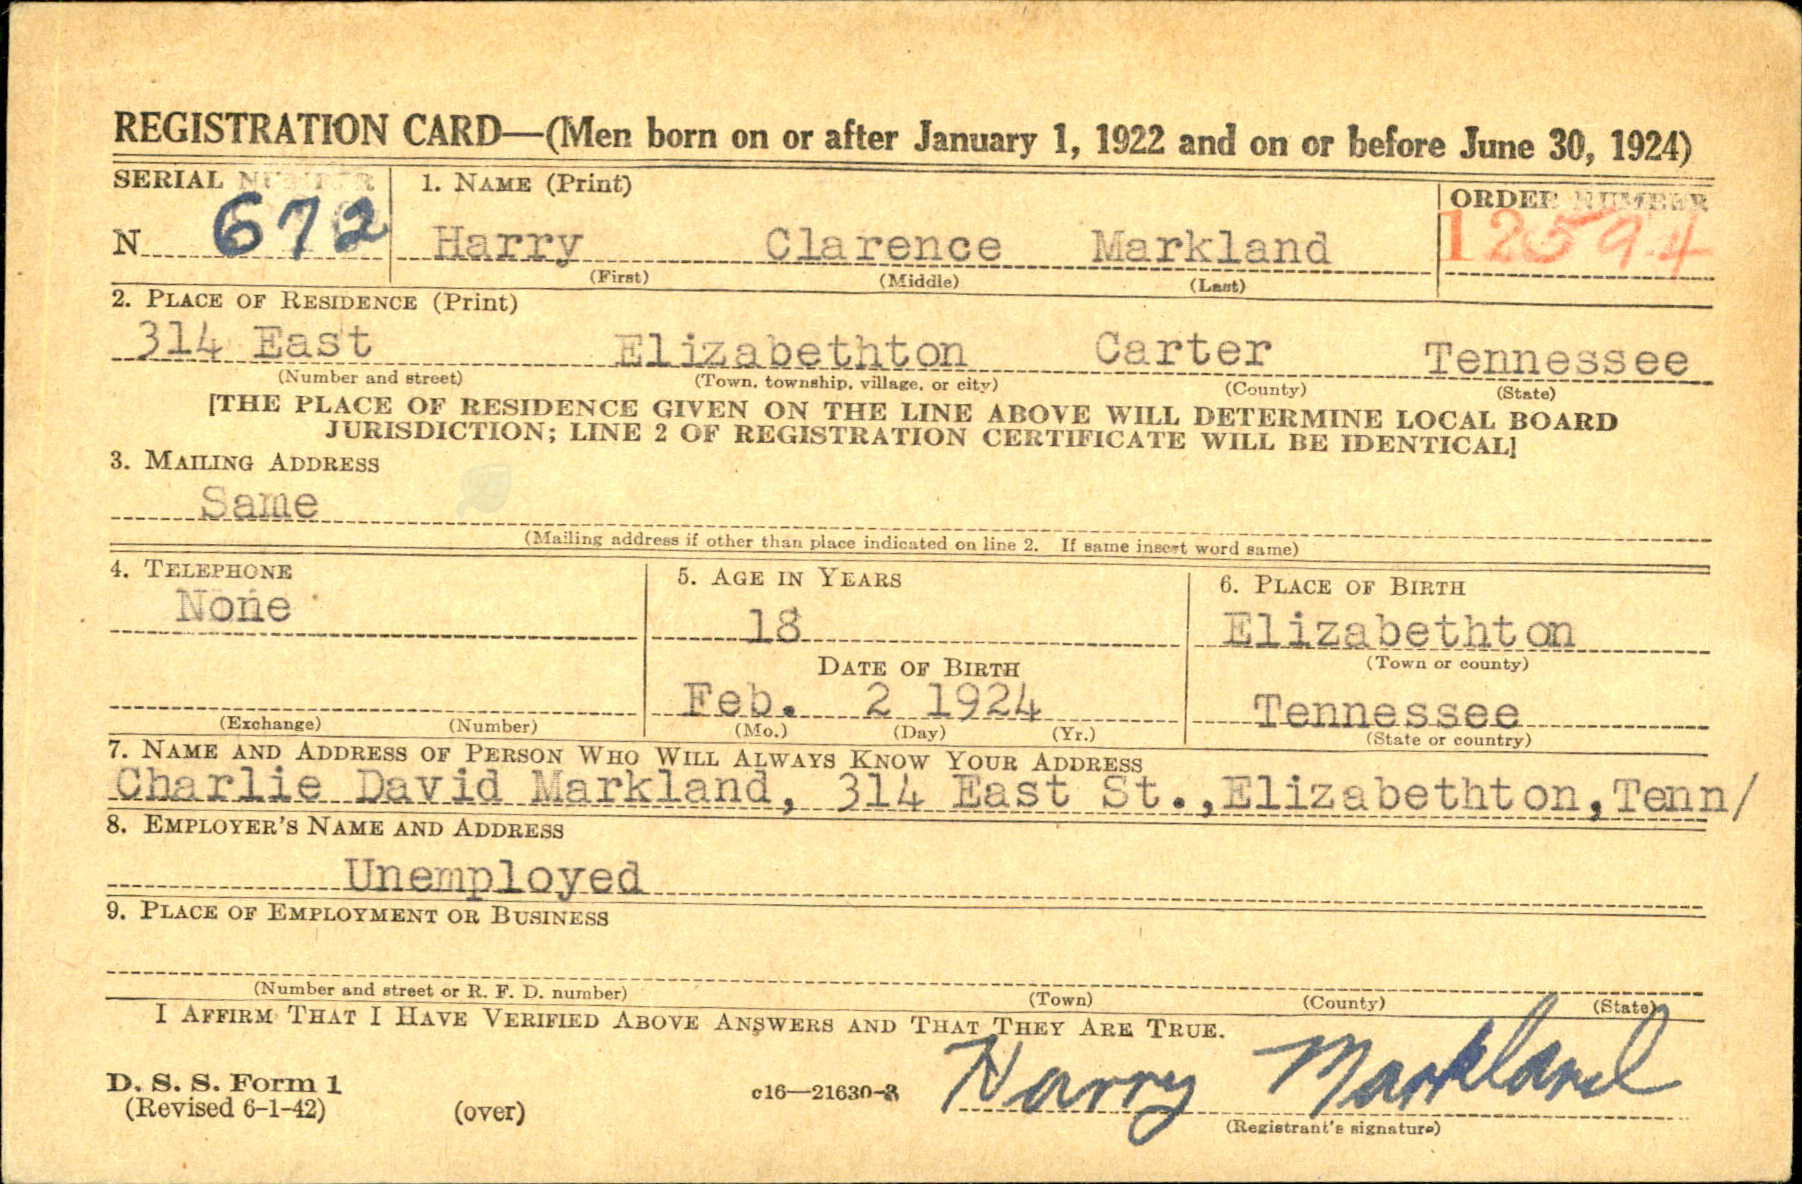 REGISTRATION CARD—(Men born on or after January 1, 1922 and on or before June 30, 1924)
SERIAL NUMBER 1. NAME (Print) ORDER NUMBER
N 672 Harry Clarence Markland 12594
(First) (Middle) (Last)
2. PLACE OF RESIDENCE (Print)
314 East Elizabethton Carter Tennessee
(Number and street) (Town, township, village, or city) (County) (State)
[THE PLACE OF RESIDENCE GIVEN ON THE LINE ABOVE WILL DETERMINE LOCAL BOARD
JURISDICTION; LINE 2 OF REGISTRATION CERTIFICATE WILL BE IDENTICAL]
3. MAILING ADDRESS
Same
(Mailing address if other than place indicated on line 2. If same insert word same)
4. TELEPHONE 5. AGE IN YEARS 6. PLACE OF BIRTH
None 18 Elizabethton
(Town or county)
DATE OF BIRTH
Feb. 2 1924 Tennessee
(Exchange) (Number) (Mo.) (Day) (Yr.) (State or country)
7. NAME AND ADDRESS OF PERSON WHO WILL ALWAYS KNOW YOUR ADDRESS
Charlie David Markland, 314 East St.,Elizabethton,Tenn/
8. EMPLOYER'S NAME AND ADDRESS
Unemployed
9. PLACE OF EMPLOYMENT OR BUSINESS
(Number and street or R. F. D. number) (Town) (County) (State)
I AFFIRM THAT I HAVE VERIFIED ABOVE ANSWERS AND THAT THEY ARE TRUE.
D. S. S. Form 1 c16—21630-3 Harry Markland
(Revised 6-1-42) (over) (Registrant's signature)